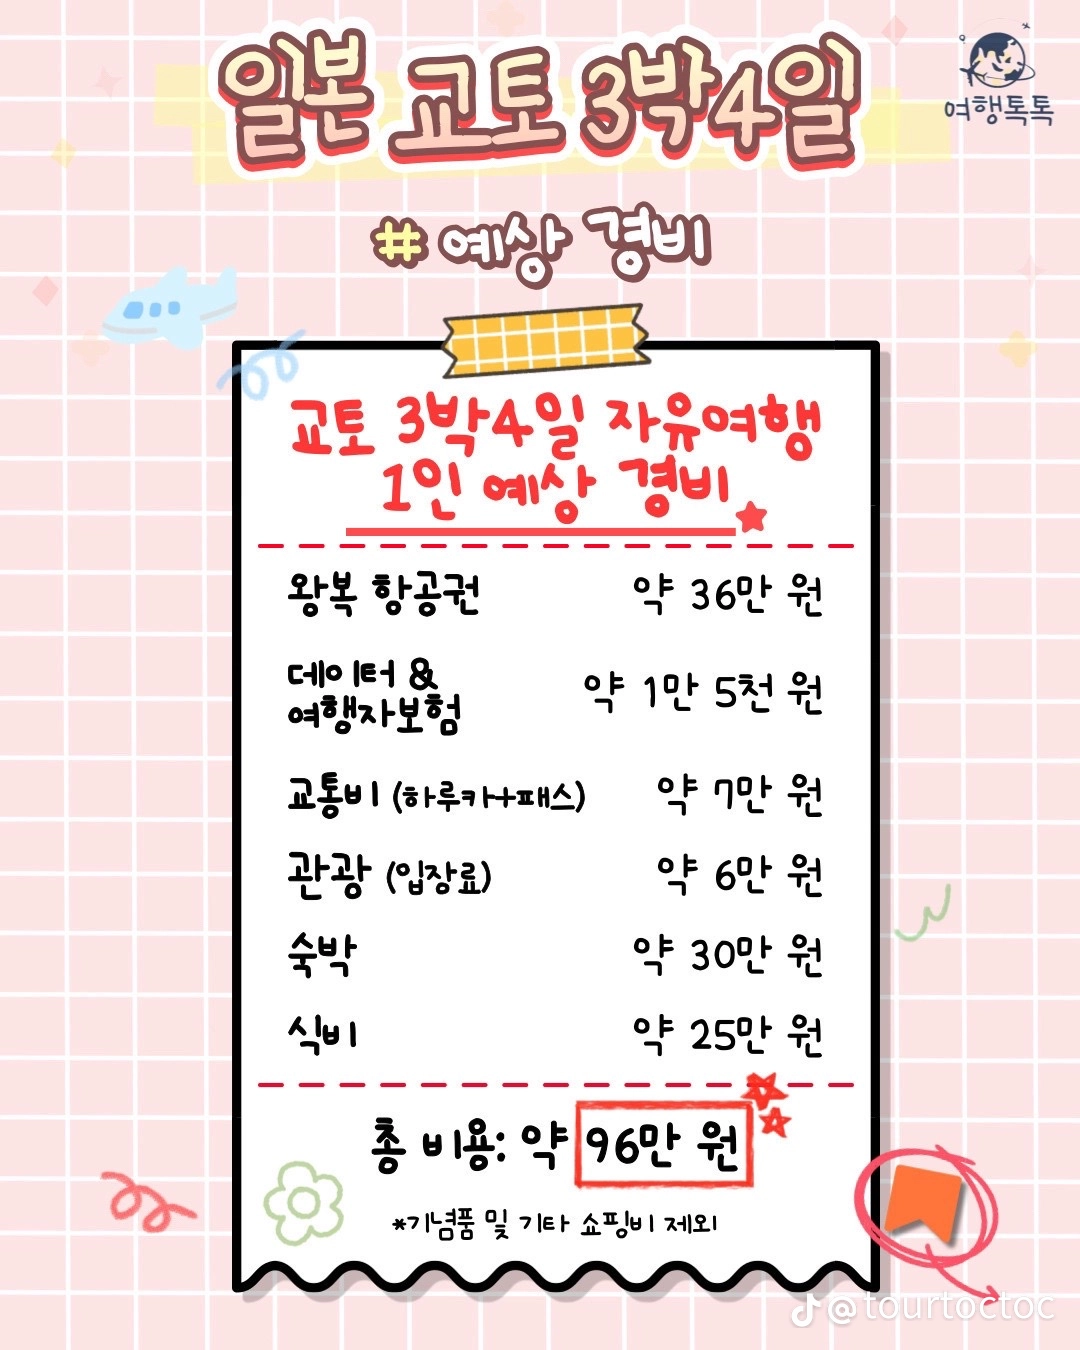 일본 교토 3박4일
여행톡톡
# 예상 경비
교토 3박4일 자유여행
1인 예상 경비
왕복 항공권 약 36만 원
데이터 &
여행자보험 약 1만 5천 원
교통비 (하루카+패스) 약 7만 원
관광 (입장료) 약 6만 원
숙박 약 30만 원
식비 약 25만 원
총 비용: 약 96만 원
*기념품 및 기타 쇼핑비 제외
@tourtoctoc